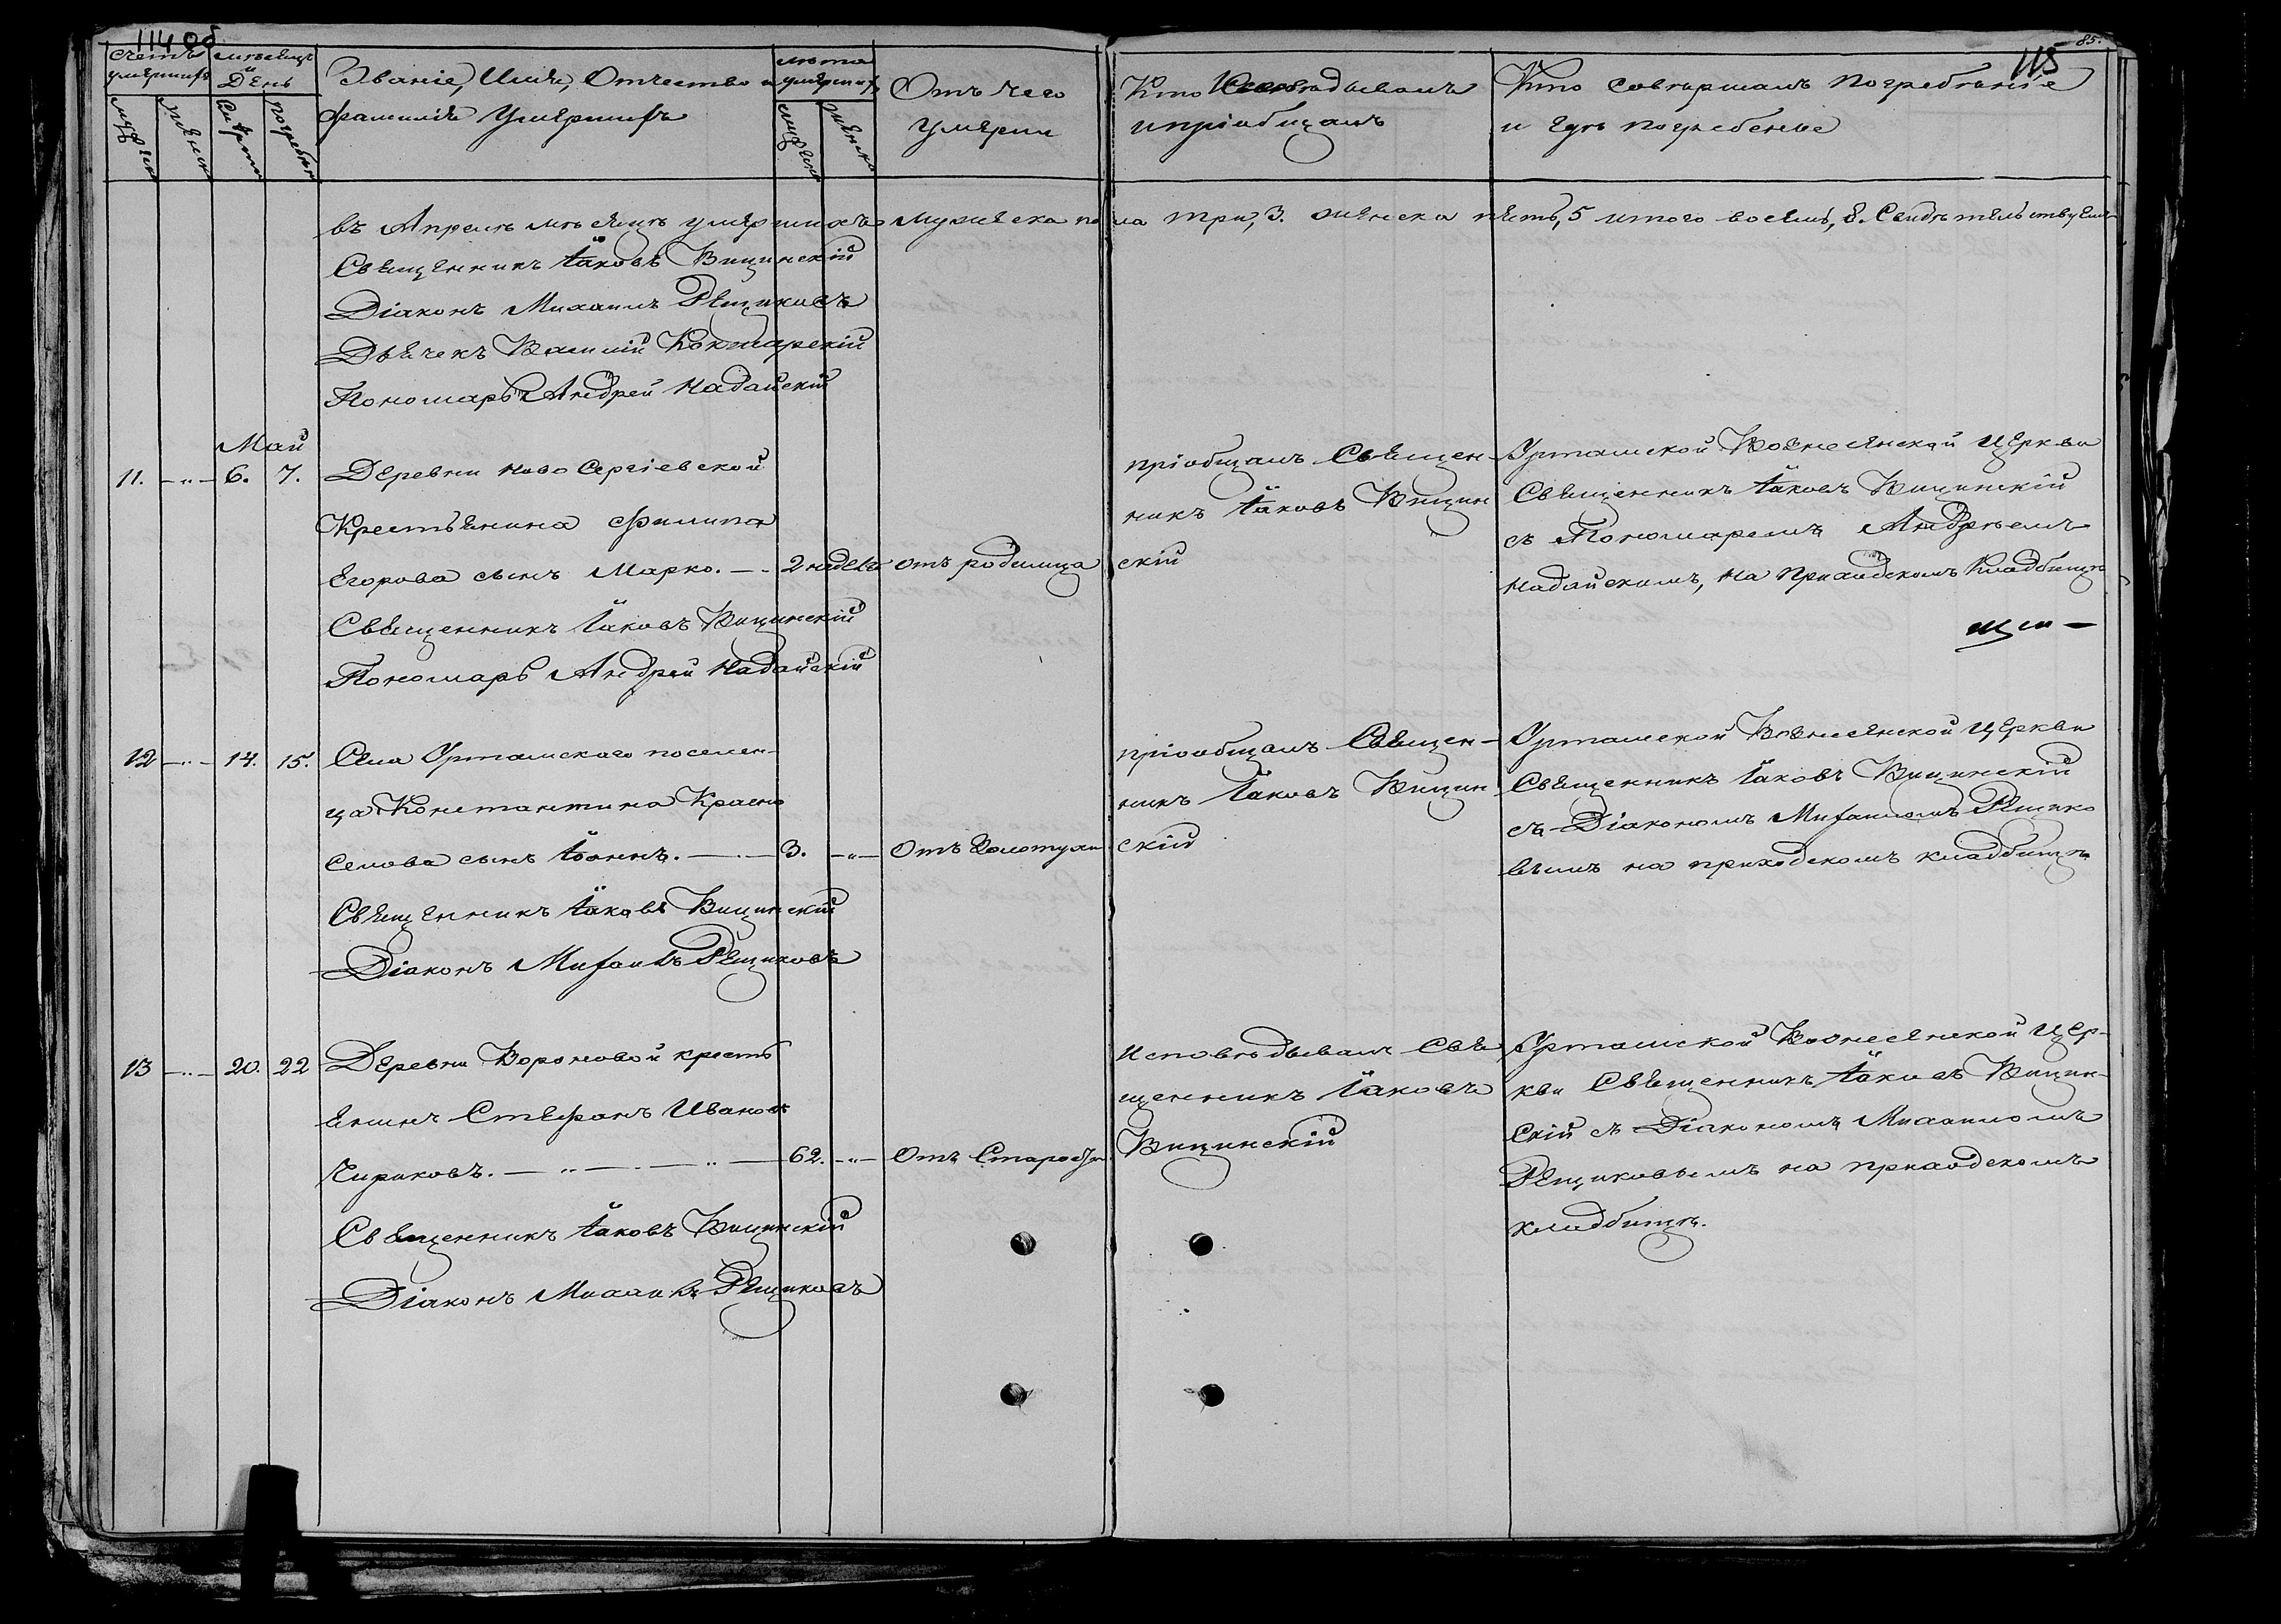 114 об
115
85.
Счетъ умершихъ
мужеска
женска
мѣсяцъ и День
Смерти
погребен
Званіе, Имя, Отчество и
фамилія Умершихъ
лѣта умершихъ
мужеска
женска
Отъ чего
умерли
Кто Исповѣдывалъ
и пріобщалъ
Кто совершалъ погребѣніе
и гдѣ погребены
въ Апрелѣ мѣсяцѣ умершихъ мужеска пола три, 3. женска пять, 5 итого восемь, 8. Свидѣтельствуемъ
Священникъ Іаковъ Вицинскій
Діаконъ Михаилъ Рещиковъ
Дьячекъ Василій Кокшарскій
Пономарь Андрей Надайскій
Май
11. —"— 6. 7. Деревни Ново Сергіевской
Крестьянина Филипа
Егорова сынъ Марко. — 2 недель отъ родимца
Священникъ Іаковъ Вицинскій
Пономарь Андрей Надайскій
пріобщалъ Священ-
никъ Іаковъ Вицин
скій
Уртамской Вознесенской Церкви
Священникъ Іаковъ Вицинскій
съ Пономаремъ Андрѣемъ
Надайскимъ, на Приходскомъ Кладбищѣ
12 —"— 14. 15. Села Уртамского поселен-
ца Константина Красно
селова сынъ Іоаннъ. — 3. —"— Отъ Золотухи
Священникъ Іаковъ Вицинскій
Діаконъ Михаилъ Рещиковъ
пріообщалъ Священ-
никъ Іаковъ Вицин
скій
Уртамской Вознесенской Церкви
Священникъ Іаковъ Вицинскій
съ Діакономъ Михаиломъ Рещико
вымъ на приходскомъ кладбищѣ
13 —"— 20. 22 Деревни Вороновой кресть
янинъ Стефанъ Иванов
Чириковъ. — " — " — 62. —"— Отъ Старости
Священникъ Іаковъ Вицинскій
Діаконъ Михаилъ Рещиковъ
Исповѣдывалъ Свя
щенникъ Іаковъ
Вицинскій
Уртамской Вознесенской Цер-
кви Священникъ Іаковъ Вицин-
скій съ Діакономъ Михаиломъ
Рещиковымъ на приходскомъ
кладбищѣ.